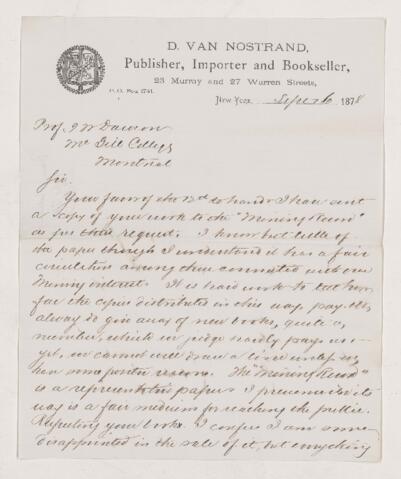 D. VAN NOSTRAND,
Publisher, Importer and Bookseller,
23 Murray and 27 Warren Streets,
P.O. Box 1741.
New York, Sept 6 1878
Prof. J W Dawson
Mc Gill College
Montreal
Sir.
Your favor of the 2d to hand. I have sent
a copy of your work to the "Mining Record"
as per their request. I know but little of
the paper though I understand it has a fair
circulation among those connected with our
Mining interest. It is hard work to tell how
far the copies distributed in this way pay. We
always do give away of new books, quite a
number, which we judge hardly pay us
yet, we cannot well draw a line unless we
have some particular reason. The "Mining Record"
is a representative paper & I presume in its
way is a fair medium for reaching the public.
Respecting your books. I confess I am some
disappointed in the sale of it, but everything